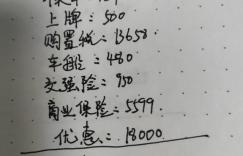 上牌：500
购置税：13658
车船：480
交强险：950
商业保险：5599
优惠：18000